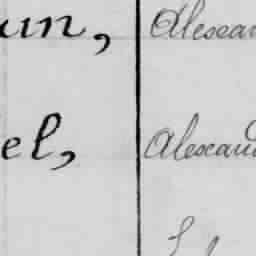 un, Alexan
el, Alexand